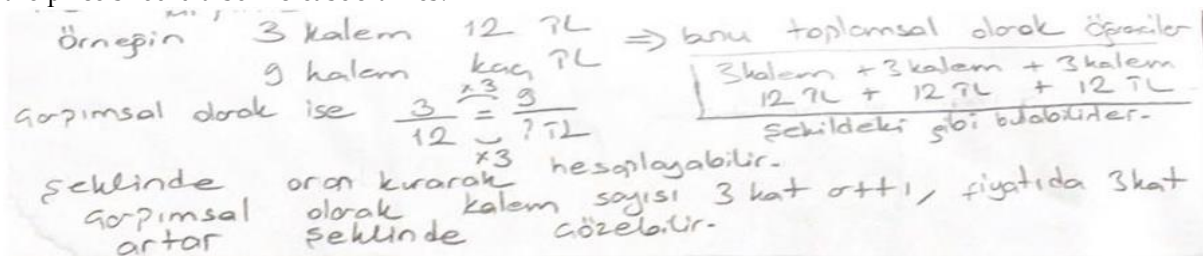 Örneğin 3 kalem 12 TL ⇒ bunu toplamsal olarak öğrenciler
9 kalem kaç TL
3 kalem + 3 kalem + 3 kalem
12 TL + 12 TL + 12 TL
şekildeki gibi bulabilirler.
Çarpımsal olarak ise 3/12 = 9/? TL
x3
x3
şeklinde oran kurarak hesaplayabilir.
Çarpımsal olarak kalem sayısı 3 kat arttı, fiyatıda 3 kat
artar şeklinde çözebilir.